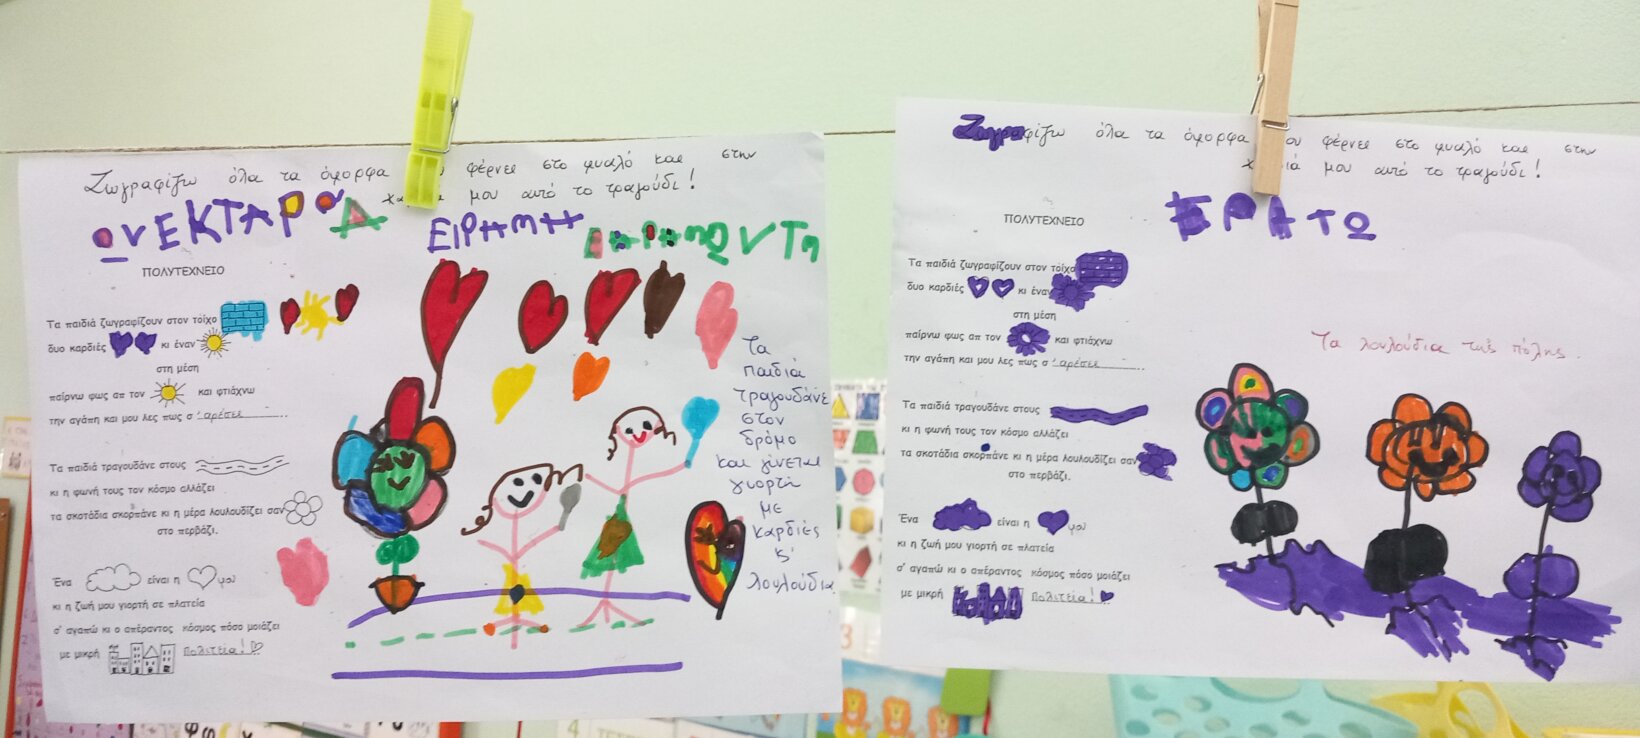 Ζωγραφίζω όλα τα όμορφα φέρνει στο μυαλό και στην
μου αυτό το τραγούδι!
ΝΕΚΤΑΡΙΑ
ΕΙΡΗΝΗ
ΠΟΛΥΤΕΧΝΕΙΟ
Τα παιδιά ζωγραφίζουν στον τοίχο
δυο καρδιές κι έναν
στη μέση
παίρνω φως απ τον και φτιάχνω
την αγάπη και μου λες πως σ' αρέσει
Τα παιδιά τραγουδάνε στους
κι η φωνή τους τον κόσμο αλλάζει
τα σκοτάδια σκορπάνε κι η μέρα λουλουδίζει σαν
στο περβάζι.
Ένα είναι η μου
κι η ζωή μου γιορτή σε πλατεία
σ' αγαπώ κι ο απέραντος κόσμος πόσο μοιάζει
με μικρή πολιτεία!
Τα
παιδιά
τραγουδάνε
στον
δρόμο
και γίνεται
γιορτή
με
καρδιές
κ'
λουλούδια
Ζωγραφίζω όλα τα όμορφα που φέρνει στο μυαλό και στην
μου αυτό το τραγούδι!
ΕΡΑΤΩ
ΠΟΛΥΤΕΧΝΕΙΟ
Τα παιδιά ζωγραφίζουν στον τοίχο
δυο καρδιές κι έναν
στη μέση
παίρνω φως απ τον και φτιάχνω
την αγάπη και μου λες πως σ' αρέσει
Τα παιδιά τραγουδάνε στους
κι η φωνή τους τον κόσμο αλλάζει
τα σκοτάδια σκορπάνε κι η μέρα λουλουδίζει σαν
στο περβάζι.
Ένα είναι η μου
κι η ζωή μου γιορτή σε πλατεία
σ' αγαπώ κι ο απέραντος κόσμος πόσο μοιάζει
με μικρή Πολιτεία!
Τα λουλούδια της πόλης.